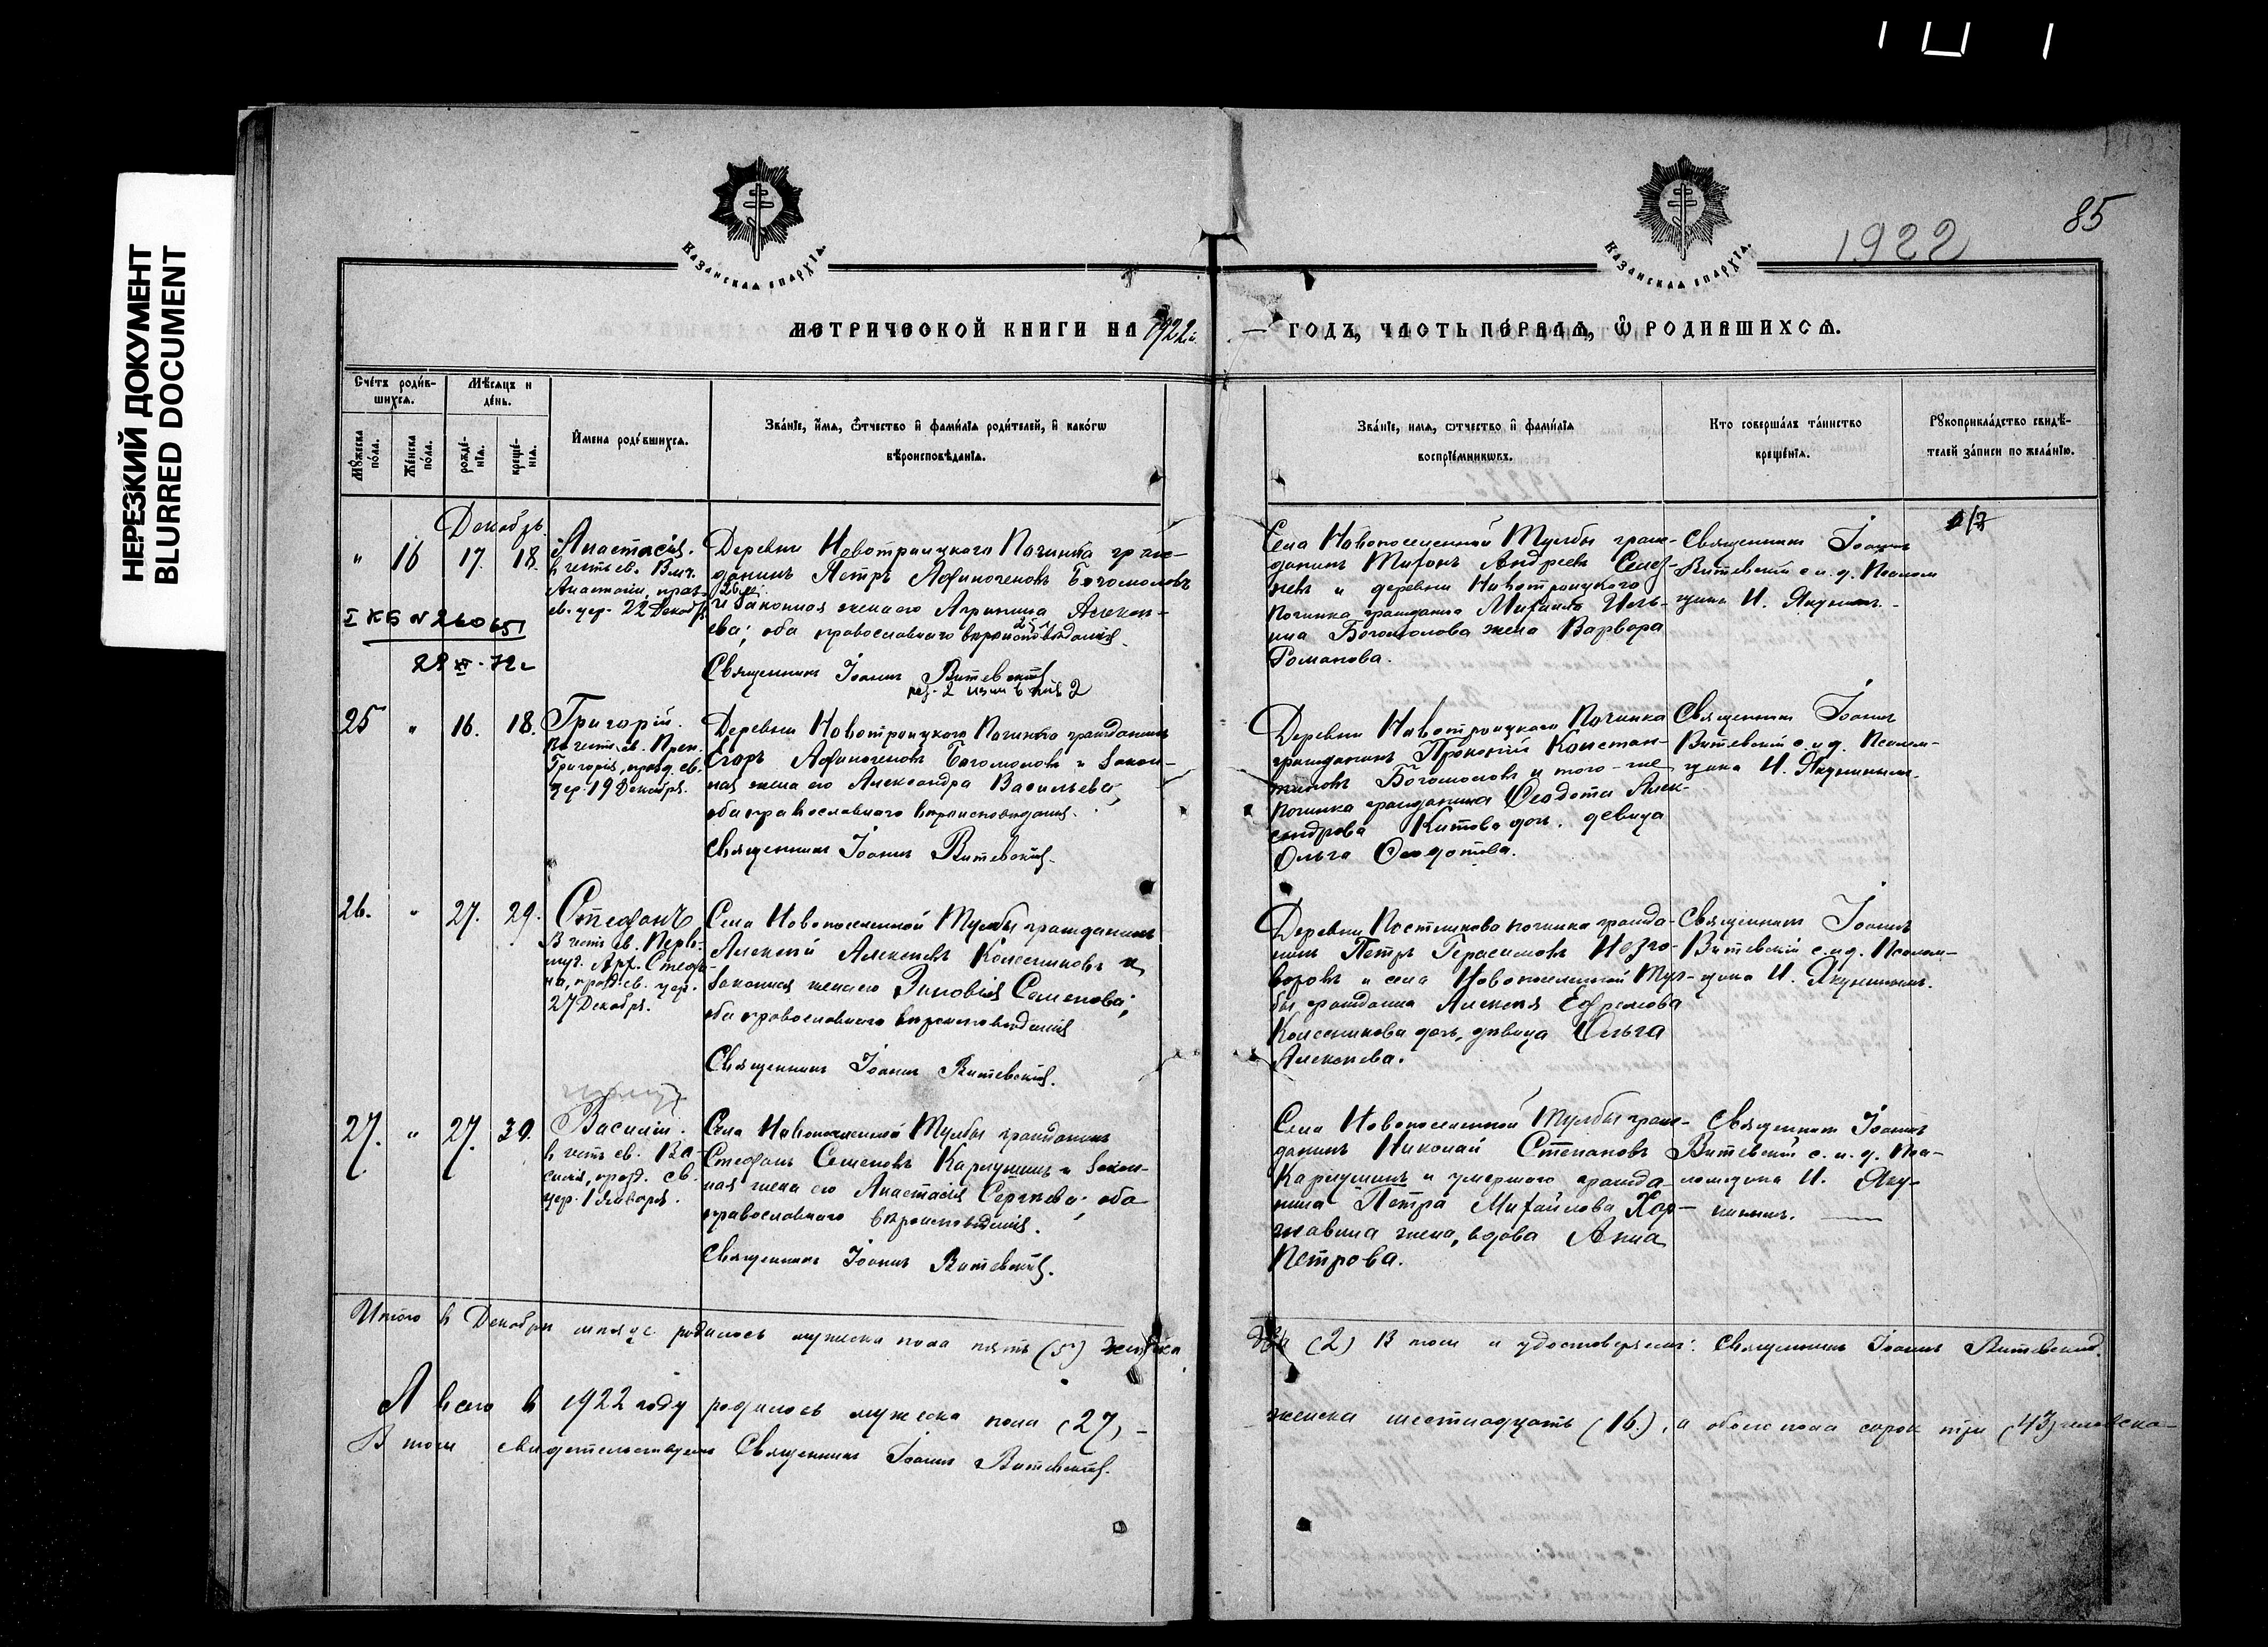 НЕРЕЗКИЙ ДОКУМЕНТ
BLURRED DOCUMENT
КАЗАНСКАѦ ЕПАРХІѦ.
КАЗАНСКАѦ ЕПАРХІѦ.
1922
85
МЕТРИЧЕСКОЙ КНИГИ НА 1922й
ГОДЪ, ЧАСТЬ ПЕРВАѦ, Ѿ РОДИВШИХСѦ.
Счетъ родив-
шихсѧ.
Мѣсѧцъ и
день.
Мужеска
пола.
Женска
пола.
рожде-
нїѧ.
креще-
нїѧ.
Имена родившихсѧ.
Званїе, имѧ, ѻтчество и фамилїѧ родителей, и какогѡ
вѣроисповѣданїѧ.
Званїе, имѧ, ѻтчество и фамилїѧ
воспрїемникѡвъ.
Кто совершалъ таинство
крещенїѧ.
Рукоприкладство свидѣ-
телей записи по желанїю.
Декабрь.
" 16 17. 18.
Анастасія.
в честь св. Влмч.
Анастасіи, празд.
св. цер. 22 Декабр.
I КБ № 26065
28 XII-72г
Деревни Новотроицкого Починка граж-
данинъ Петръ Афиногеновъ Богомоловъ
26 л.
и законная жена его Агрипина Алексѣ-
25 л.
ева; оба православнаго вѣроисповѣданія.
Священникъ Іоаннъ Витевскій
Села Новопоселенной Тумбы граж-
данинъ
Андреевъ
и деревни Новотроицкого
починка гражданина Михаила Иль-
ина Богомолова жена Варвора
Романова.
Священникъ Іоаннъ
Витевскій с и. д. Псалом-
щика И. Якунинымъ.
25 " 16. 18.
Григорій.
В честь св. Преп.
Григорія, празд. св.
цер. 19 Декабря.
Деревни Новотроицкого Починка гражданинъ
Егоръ Афиногеновъ Богомоловъ и закон-
ная жена его Александра Васильева,
оба православнаго вѣроисповѣданія.
Священникъ Іоаннъ Витевскій.
Деревни Новотроицкого Починка
гражданинъ Прокопій Констан-
тиновъ Богомоловъ и того-же
починка гражданина Ѳеодота Алек-
сандрова Китова доч. девица
Ольга Ѳеодотова.
Священникъ Іоаннъ
Витевскій с и.д. Псалом-
щика И. Якунинымъ.
26. " 27. 29.
Стефанъ
В честь св. Перво-
муч. Арх. Стефа-
на, празд. св. цер.
27 Декабря.
Села Новопоселенной Тумбы гражданинъ
Алексѣй Алексѣевъ Колесниковъ и
законная жена его Зиновія Семенова;
оба православнаго вѣроисповѣданія
Священникъ Іоаннъ Витевскій.
Деревни Постникова починка гражда-
нинъ Петръ Герасимовъ Незго-
воровъ и села Новопоселенной Тум-
бы гражданина Алексѣя Ефремова
Колесникова доч. дѣвица Ольга
Алексѣева.
Священникъ Іоаннъ
Витевскій с и.д. Псалом-
щика И. Якунинымъ.
27. " 27. 30.
Василій.
в честь св. Ва-
силія, празд. св.
цер. 1 Января.
Села Новопоселенной Тумбы гражданинъ
Стефанъ Семеновъ Карпушинъ и закон-
ная жена его Анастасія Сергѣева; оба
православнаго вѣроисповѣданія.
Священникъ Іоаннъ Витевскій.
Села Новопоселенной Тумбы граж-
данинъ Николай Степановъ
Карпушинъ и умершого гражда-
нина Петра Михайлова Хор-
жавина жена, вдова Анна
Петрова.
Священникъ Іоаннъ
Витевскій с. и. д. Пса-
ломщика И. Яку-
нинымъ.
Итого в Декабрѣ мѣсяце родилось мужеска пола пять (5) женска
два (2) В том и удостоверяемъ: Священникъ Іоаннъ Витевский.
А всего в 1922 году родилось мужеска пола (27) -
женска шестнадцать (16), а обоего пола сорок три (43) человека-
В том свидетельствуем Священникъ Іоаннъ Витевскій.